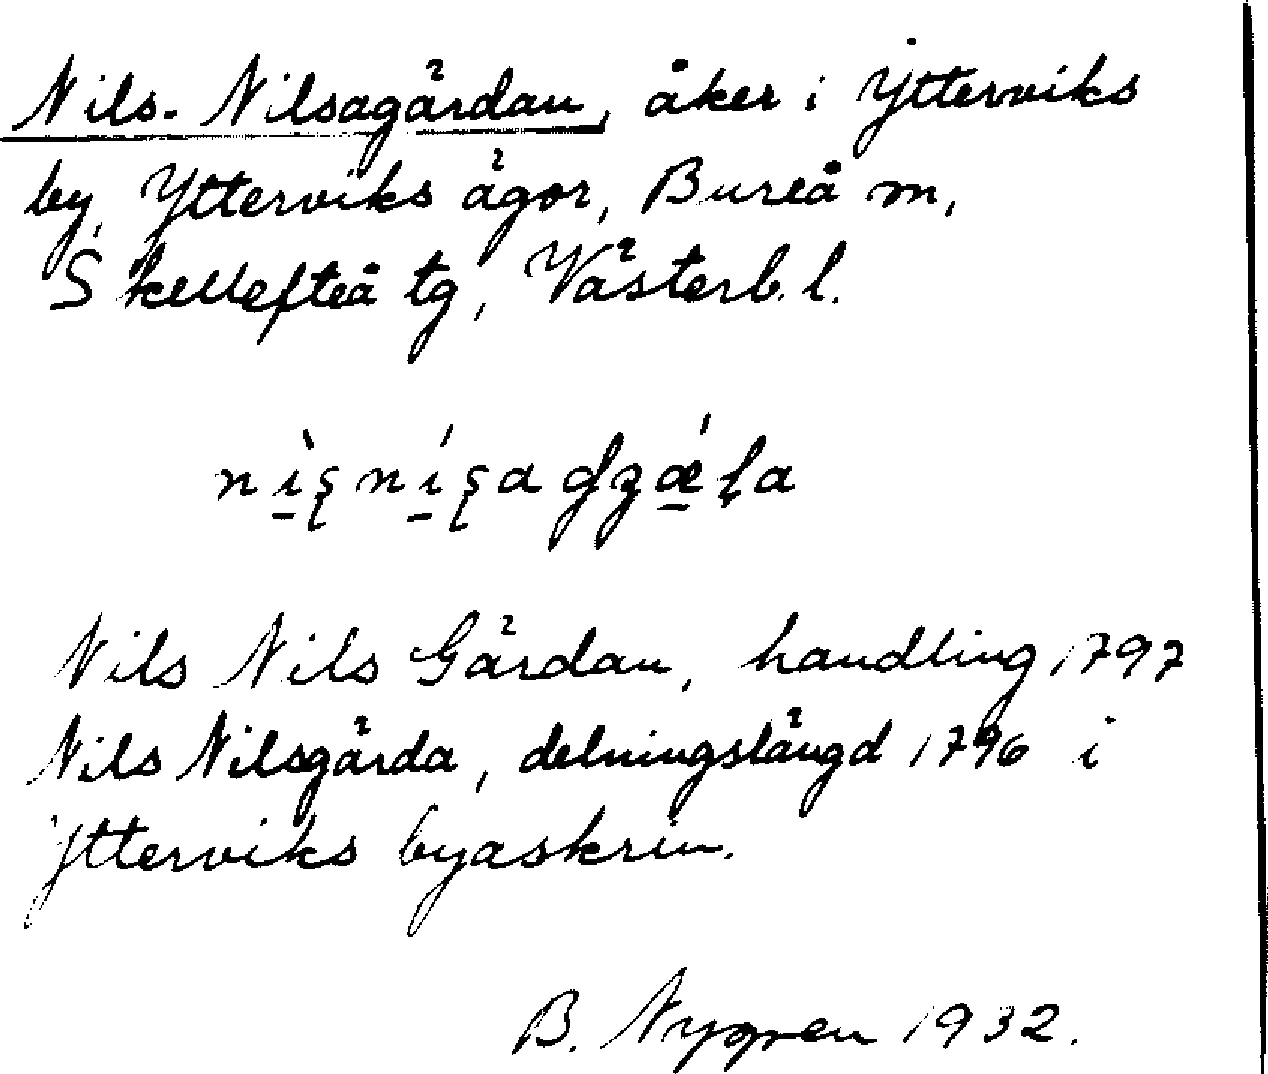 Nils-Nilsagärdan, åker i Ytterviks
by, Ytterviks ägor, Bureå m,
Skellefteå tg, Västerb. l.
Nils Nils Gärdan, handling 1797
Nils Nilsgärda, delningslängd 1796 i
Ytterviks byaskrin.
B. Nygren 1932.